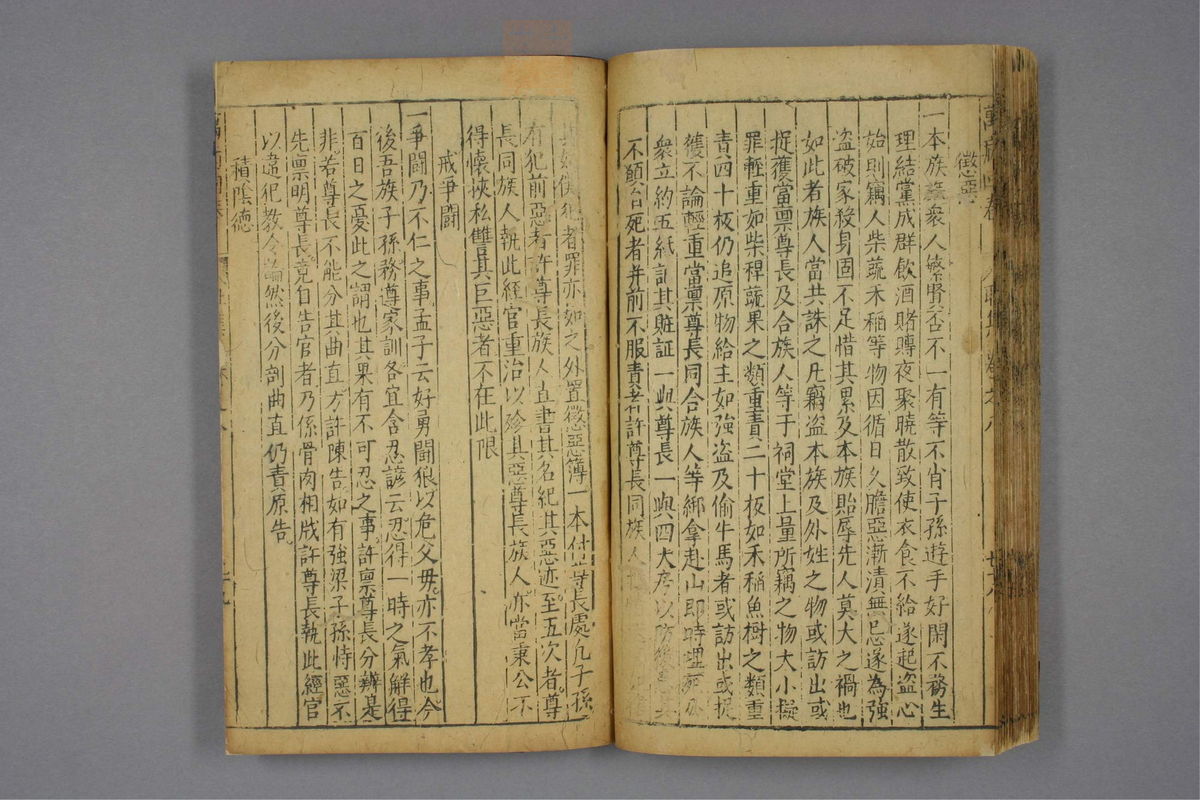 懲惡
一本族衆人繁賢否不一有等不肖子孫遊手好閑不務生
理結黨成群飲酒賭賻夜聚曉散致使衣食不給遂起盜心
始則竊人柴蔬禾稻等物因循日久膽惡漸漬無忌遂為強
盜破家殺身固不足惜其累及本族貽辱先人莫大之禍也
如此者族人當共誅之凡竊盜本族及外姓之物或訪出或
捉獲當禀尊長及合族人等于祠堂上量所竊之物大小擬
罪輕重如柴稈蔬果之類重責二十板如禾稻魚樹之類重
責四十板仍追原物給主如強盜及偷牛馬者或訪出或捉
獲不論輕重當禀尊長同合族人等綁拿赴山即時埋死仍
衆立約五紙計其賍証一與尊長一與四大房以防後
不願台死者并前不服責者許尊長同族人
者罪亦如之外置懲惡簿一本付尊長處凡子孫
有犯前惡者許尊長族人直書其名紀其惡迹至五次者尊
長同族人執此經官重治以殄其惡尊長族人亦當秉公不
得懷挾私讐其巨惡者不在此限
戒爭鬪
一爭鬪乃不仁之事孟子云好勇鬪狠以危父母亦不孝也今
後吾族子孫務尊家訓各宜含忍諺云忍得一時之氣解得
百日之憂此之謂也其果有不可忍之事許禀尊長分辨是
非若尊長不能分其曲直方許陳告如有強梁子孫恃惡不
先禀明尊長竟自告官者乃係骨肉相戕許尊長執此經官
以違犯教令論然後分剖曲直仍責原告
積陰德